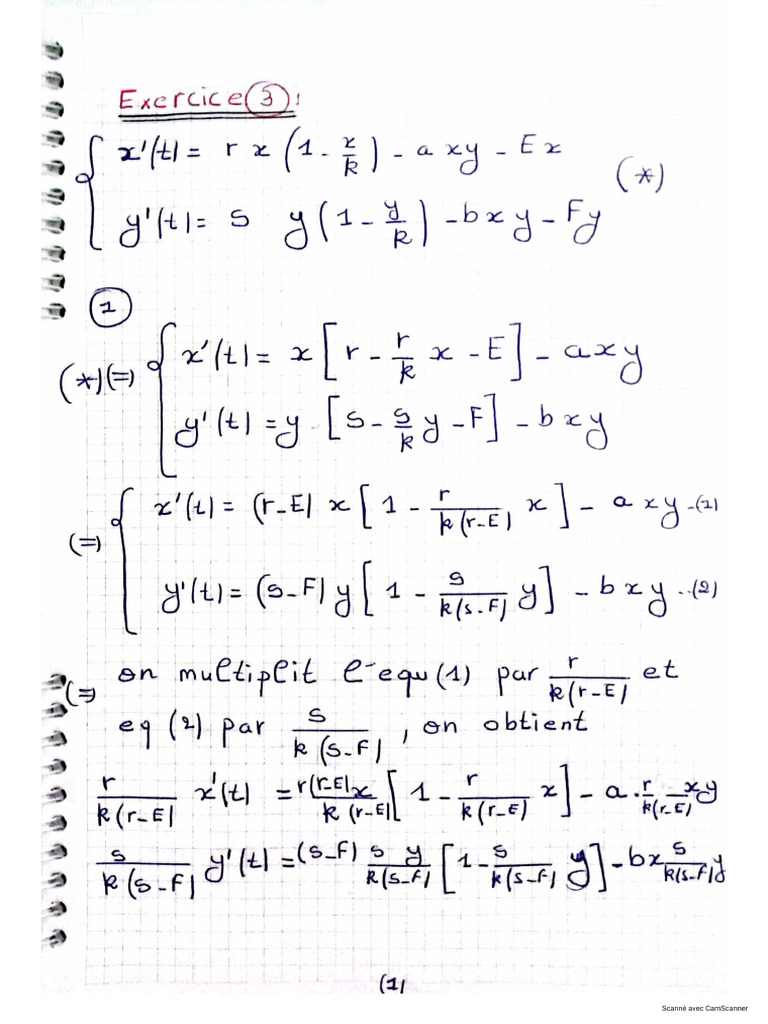 Exercice 3 :
x'(t) = r x (1 - x/k) - a xy - E x
(*)
y'(t) = s y (1 - y/k) - b x y - F y
1
(*) (=) x'(t) = x [r - r/k x - E] - a x y
y'(t) = y . [s - s/k y - F] - b x y
(=) x'(t) = (r-E) x [1 - r/k(r-E) x] - a x y -(1)
y'(t) = (s-F) y [1 - s/k(s-F) y] - b x y ..(2)
(=) on multiplit l'equ (1) par r/k(r-E) et
eq (2) par s/k(s-F) , on obtient
r/k(r-E) x'(t) = r(r-E)x/k(r-E) [1 - r/k(r-E) x] - a . r/k(r-E) - xy
s/k(s-F) y'(t) = (s-F) s y/k(s-F) [1 - s/k(s-F) y] - bx s/k(s-F) y
(1)
Scanné avec CamScanner